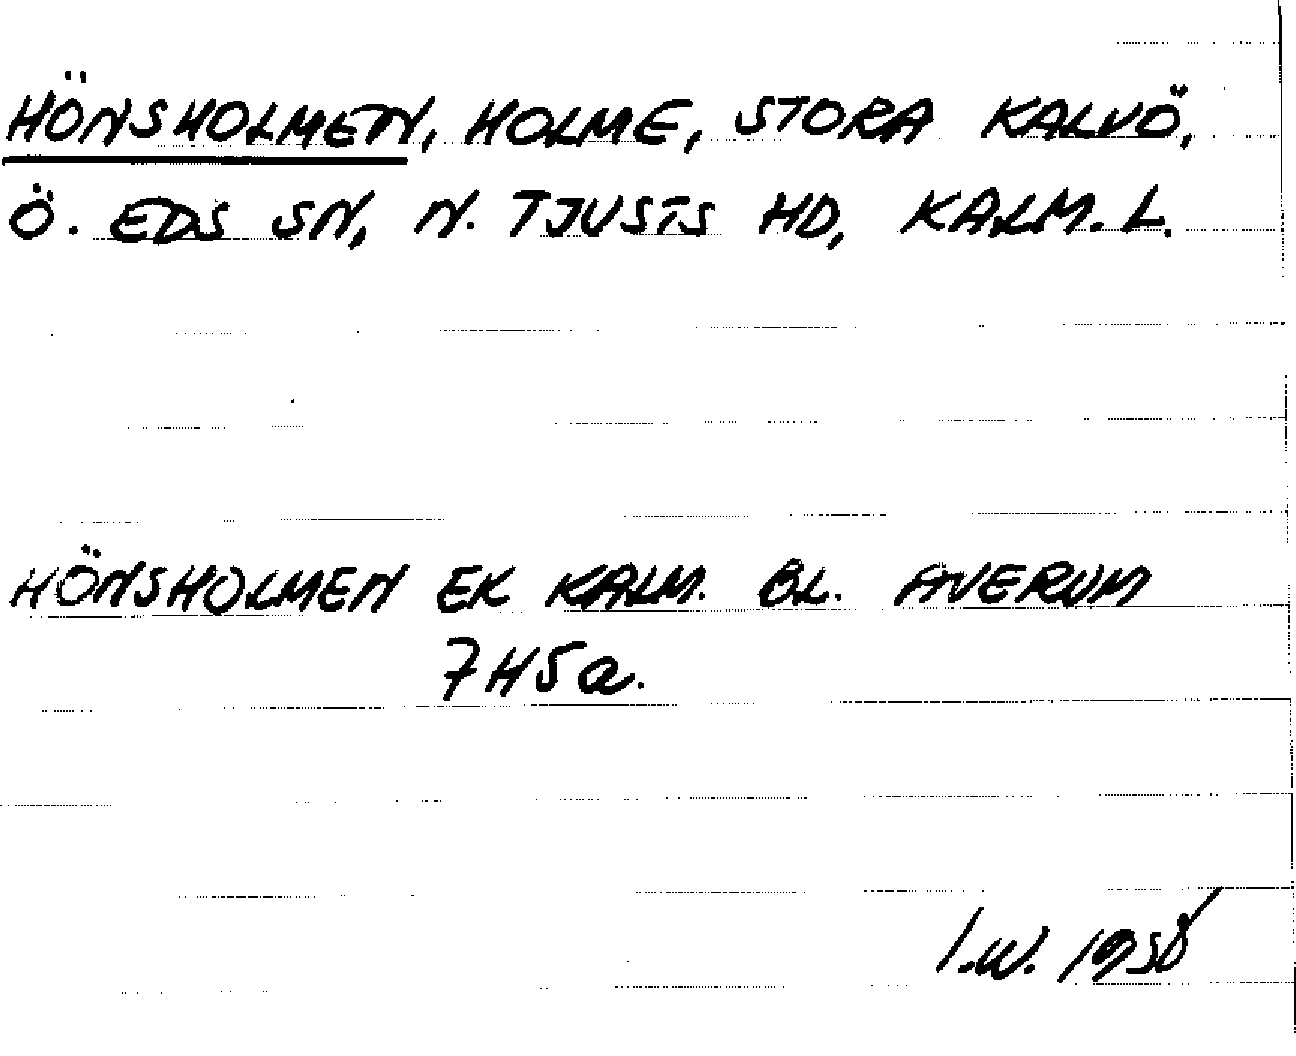 HÖNSHOLMEN, HOLME, STORA KALVÖ,
Ö. EDS SN, N. TJUSTS HD, KALM. L.
HÖNSHOLMEN EK KALM. BL. AVERUM
7H5a.
I.W. 1958